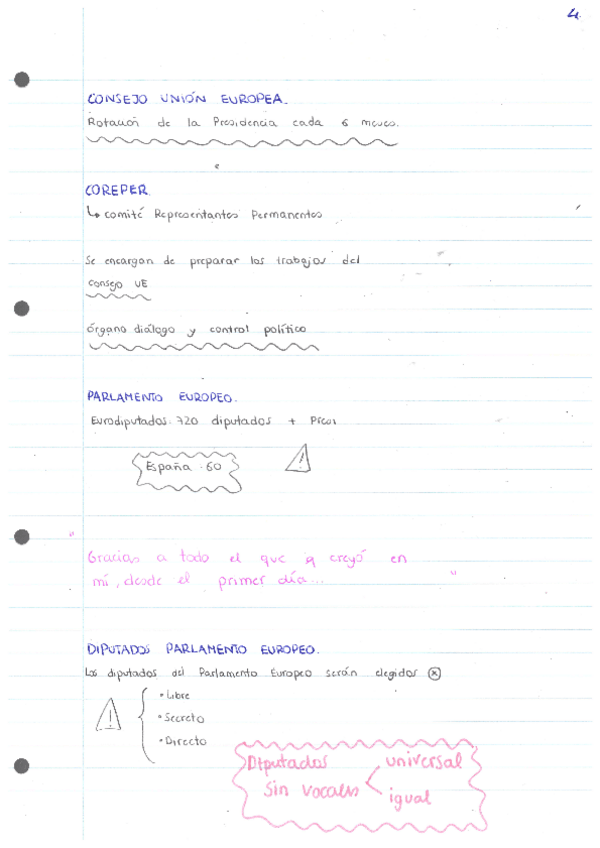 4
CONSEJO UNIÓN EUROPEA.
Rotación de la Presidencia cada 6 meses.
COREPER
↳ comité Representantes Permanentes
Se encargan de preparar los trabajos del
consejo UE
órgano diálogo y control político
PARLAMENTO EUROPEO.
Eurodiputados: 720 diputados +
España · 60
"Gracias a todo el que creyó en
mí, desde el primer día... "
DIPUTADOS PARLAMENTO EUROPEO.
Los diputados del Parlamento Europeo serán elegidos
• Libre
• Secreto
• Directo
Dtputados universal
sin vocales igual